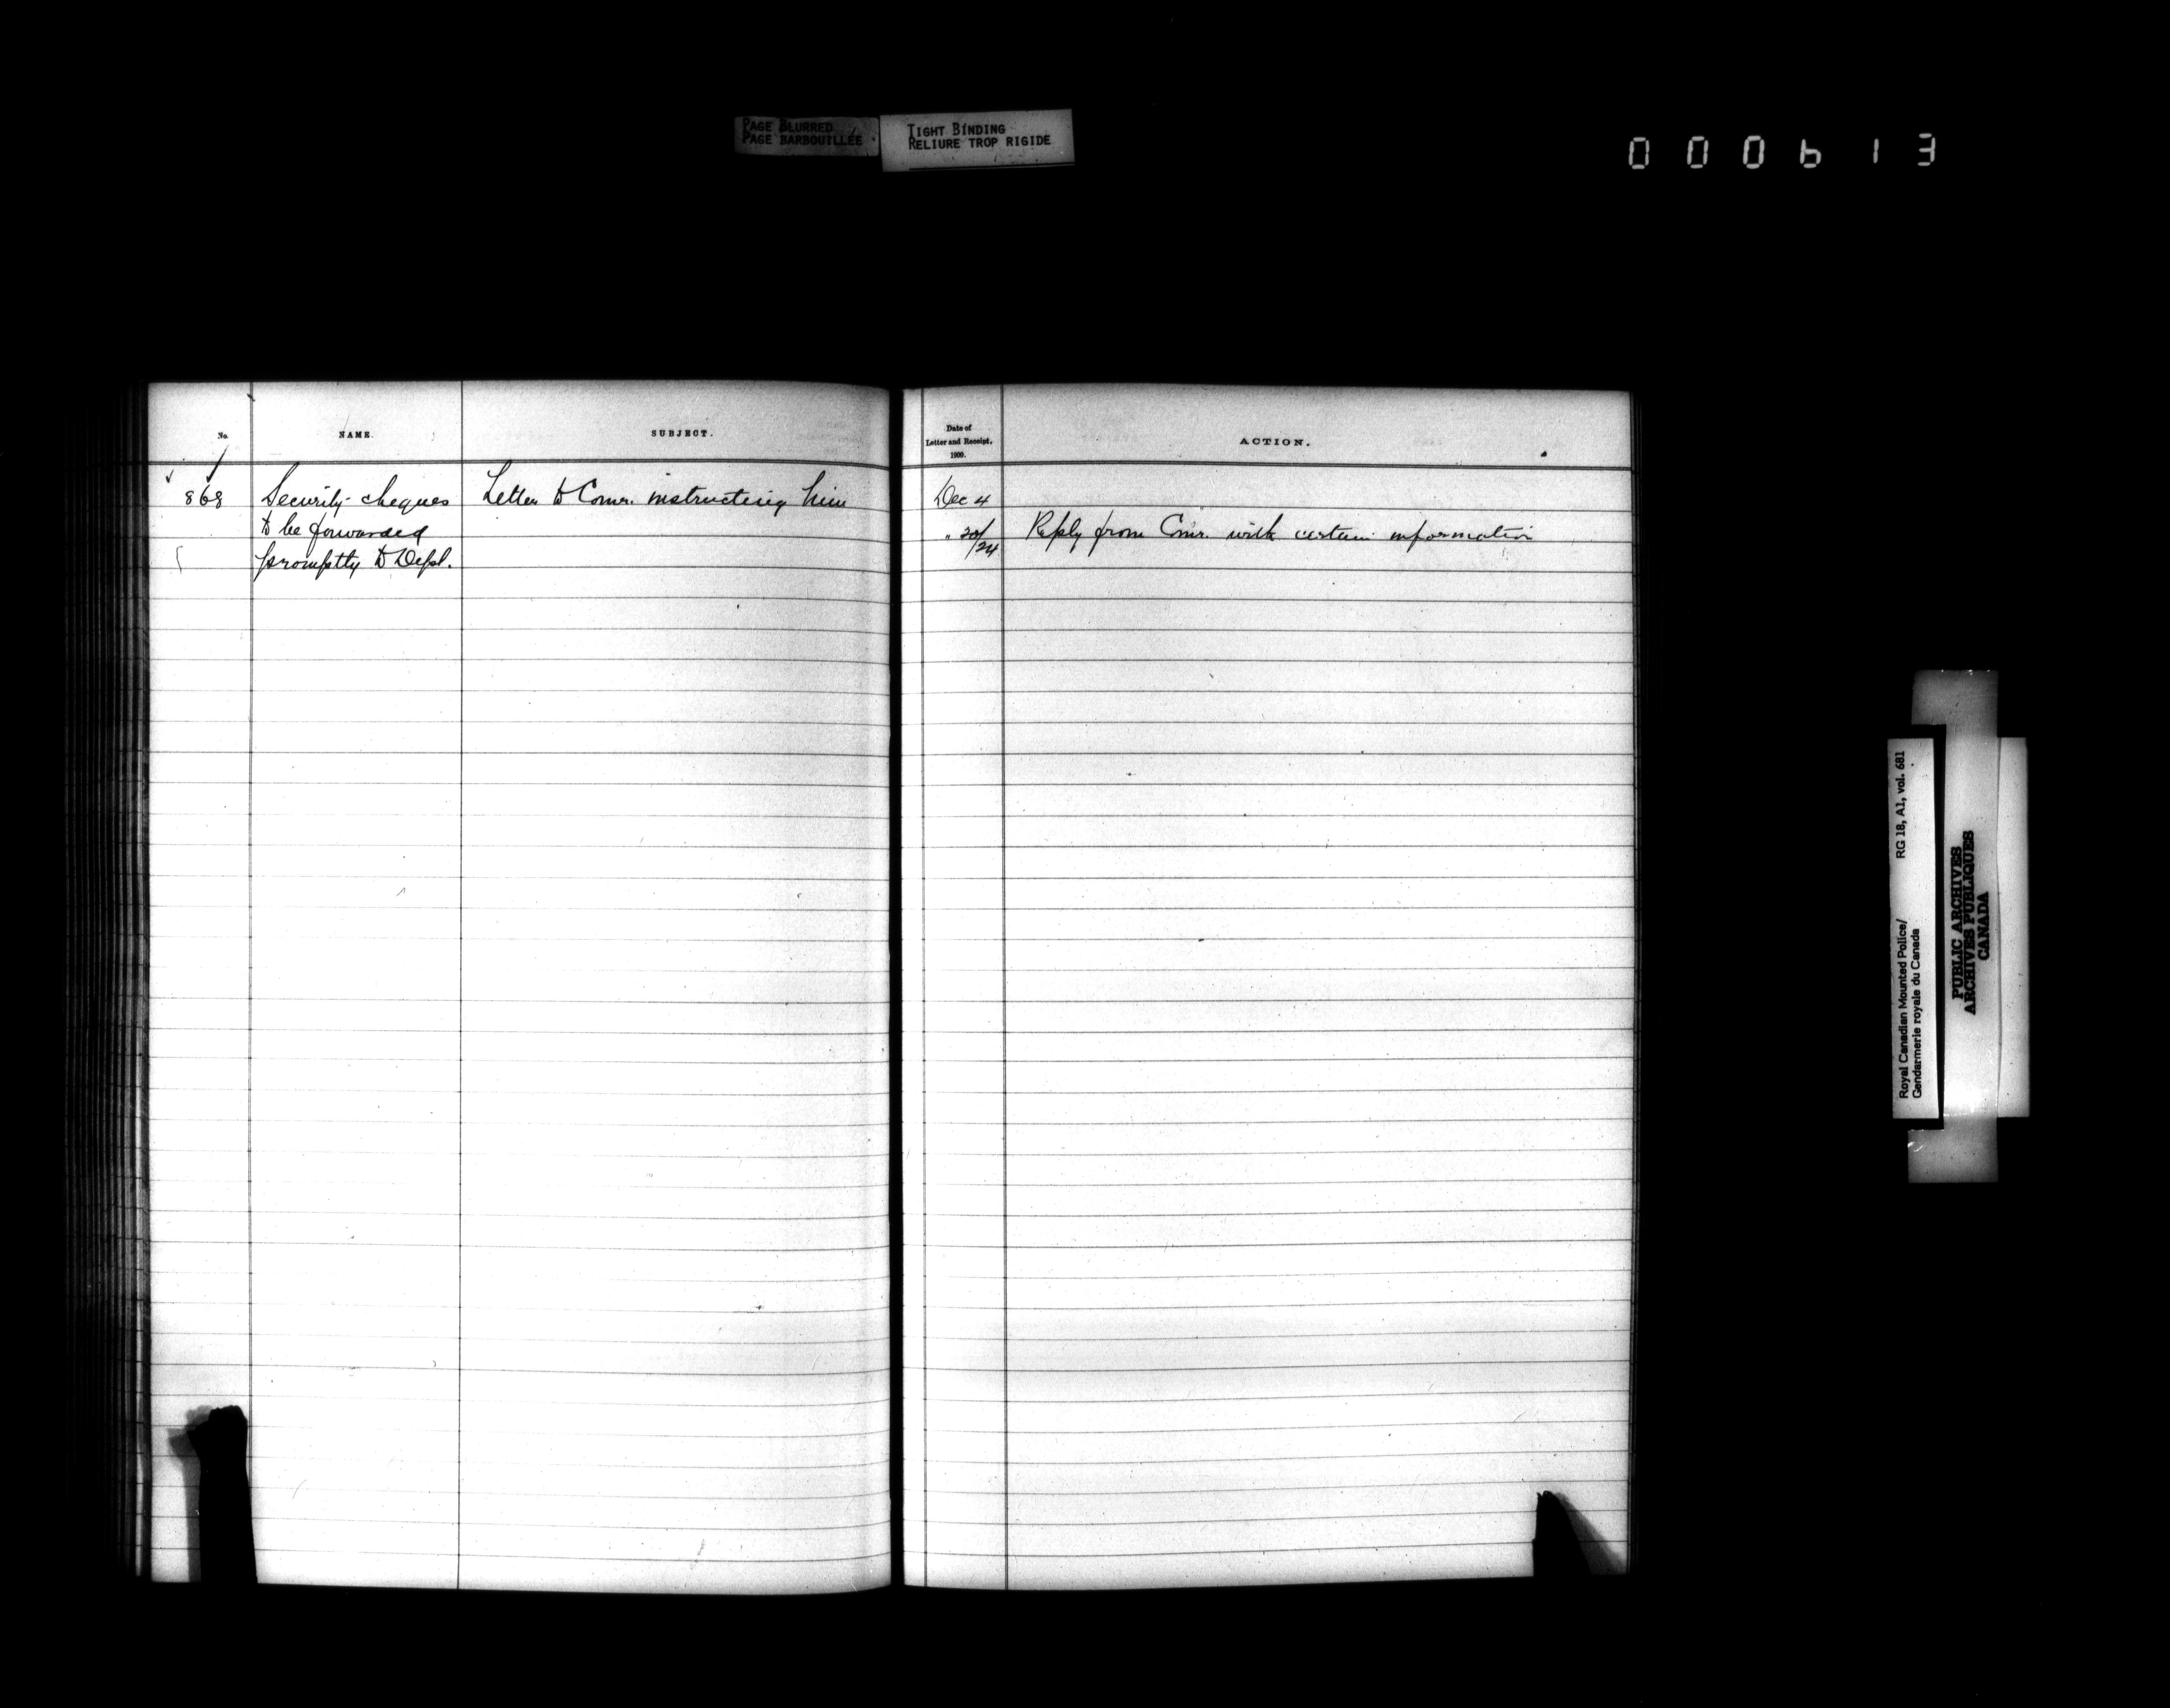 PAGE BLURRED
PAGE BARBOUILLÉE
TIGHT BINDING
RELIURE TROP RIGIDE
000613
No.
NAME.
SUBJECT.
868 Security cheques Letter to Comr. instructing him
to be forwarded
promptly to Dept.
Date of
Letter and Receipt,
1900.
ACTION.
Dec 4
" 20/24 Reply from Comr. with certain information
Royal Canadian Mounted Police/ RG 18, A1, vol. 681
Gendarmerie royale du Canada
PUBLIC ARCHIVES
ARCHIVES PUBLIQUES
CANADA